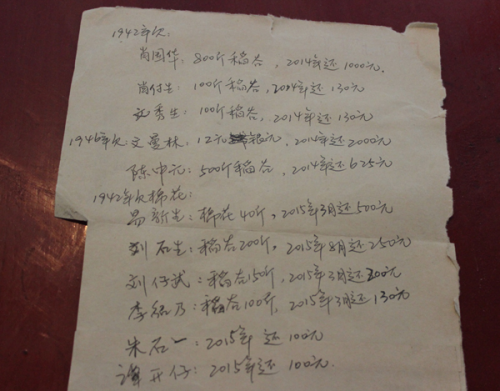 1942年欠:
肖国华: 800斤稻谷, 2014年还1000元.
肖付生: 100斤稻谷, 2014年还130元
文秀生: 100斤稻谷, 2014年还130元
1946年欠文量林: 12元 , 2014年还2000元
陈中元: 500斤稻谷, 2014年还625元
1942年欠棉花:
易新生: 棉花40斤, 2015年3月还500元
刘石生: 稻谷200斤, 2015年8月还250元
刘仔武: 稻谷150斤, 2015年3月还200元
李 乃: 稻谷100斤, 2015年3月还130元
朱石一: 2015年 还100元
谭开仔: 2015年还100元.